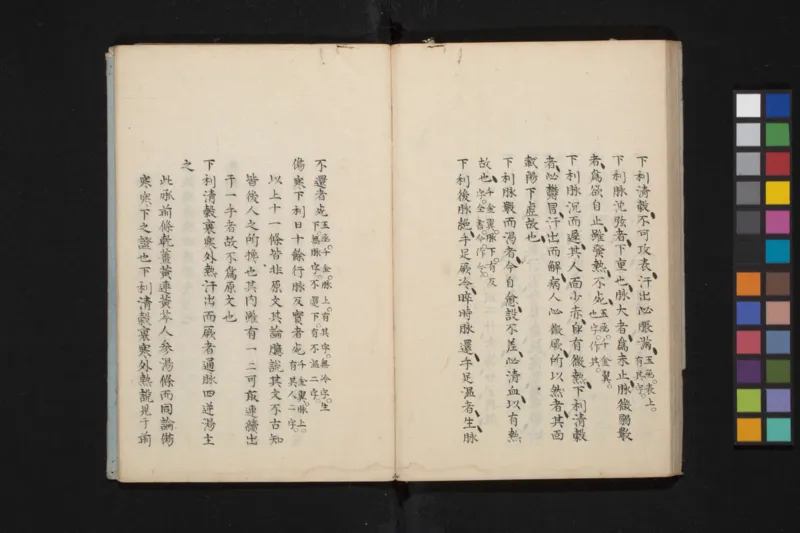 下利清穀不可攻表汗出必脹滿玉函表上有其字
下利脉沈弦者下重也脉大者爲未止脉微弱數
者爲欲自止雖發熱不死玉函千金翼也字作其
下利脉沉而遲其人面少赤身有微熱下利清穀
者必鬱冒汗出而解病人必微厥所以然者其面
戴陽下虛故也
下利脉數而渴者今自愈設不差必清血以有熱
故也千金翼脉下有反字全書今作令
下利後脉絕手足厥冷晬時脉還手足温者生脉
不還者死玉函千金脉上有其字無冷字生下無脉字不還下有不温二字
傷寒下利日十餘行脉反實者死千金翼脉上有其人二字
以上十一條皆非原文其論臆說其文不古知
皆後人之所攙也其内雖有一二可取連續出
于一手者故不爲原文也
下利清穀裏寒外熱汗出而厥者通脉四逆湯主
之
此承前條乾薑黃連黃芩人參湯條而同論傷
寒寒下之證也下利清穀裏寒外熱說見于前